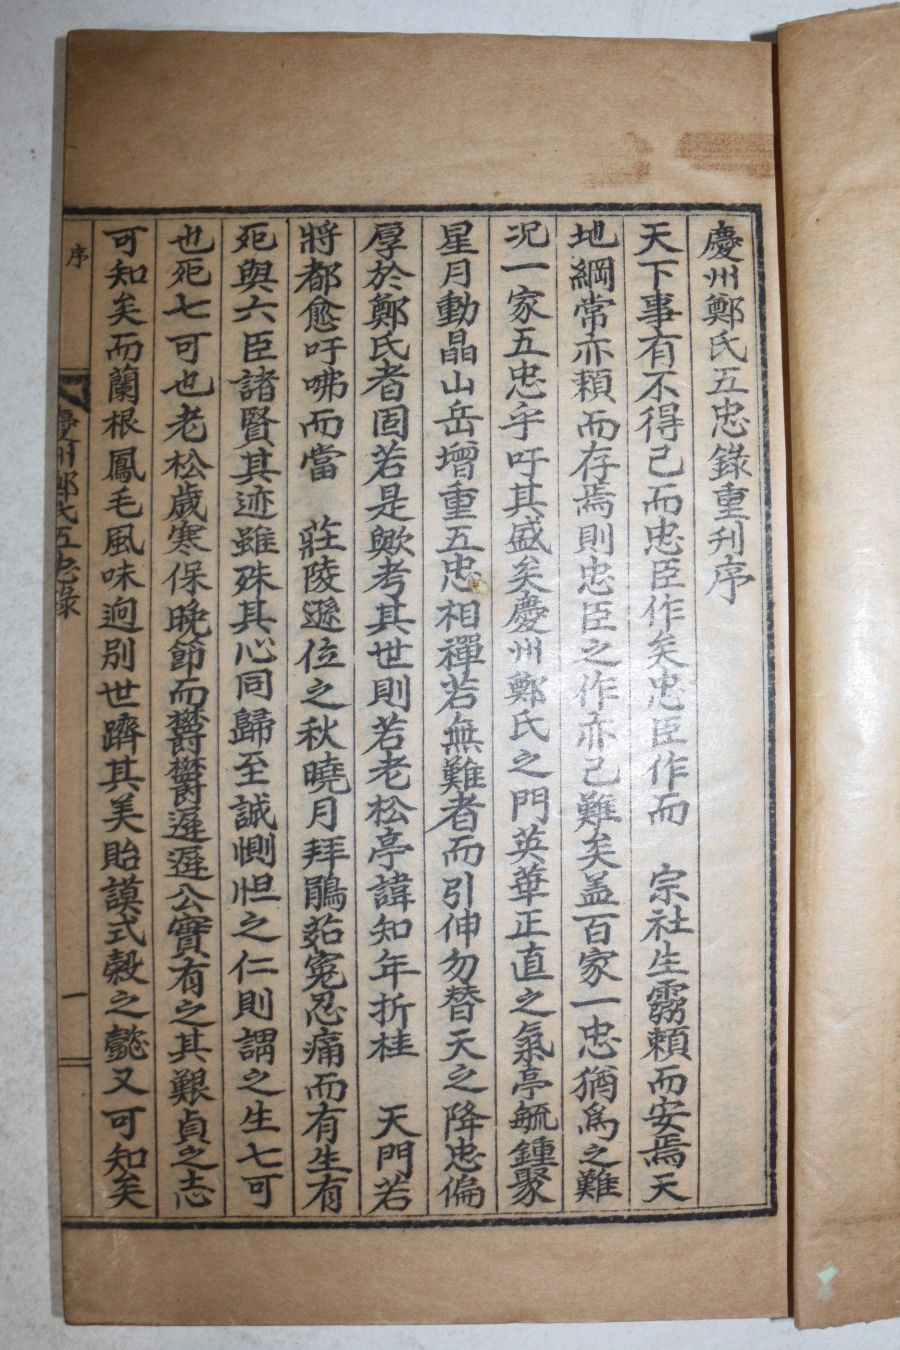 慶州鄭氏五忠錄重刊序
天下事有不得已而忠臣作矣忠臣作而　宗社生靈賴而安焉天
地綱常亦賴而存焉則忠臣之作亦已難矣盖百家一忠猶爲之難
况一家五忠乎吁其盛矣慶州鄭氏之門英華正直之氣亭毓鍾聚
星月動晶山岳增重五忠相禪若無難者而引伸勿替天之降忠偏
厚於鄭氏者固若是歟考其世則若老松亭諱知年折桂　天門若
將都愈吁咈而當　莊陵遜位之秋曉月拜鵑茹寃忍痛而有生有
死與六臣諸賢其迹雖殊其心同歸至誠惻怛之仁則謂之生七可
也死七可也老松歲寒保晩節而欝欝遲遲公實有之其艱貞之志
可知矣而蘭根鳳毛風味逈別世躋其美貽謨式穀之懿又可知矣
序
慶州鄭氏五忠錄
一